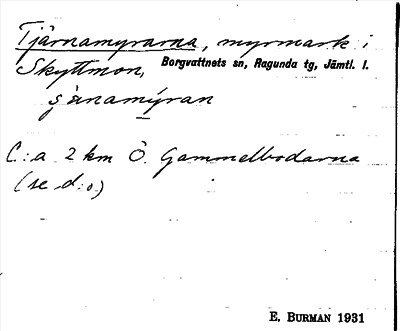 Tjärnamyrarna, myrmark i
Skyttmon, Borgvattnets sn, Ragunda tg, Jämtl. l.
şänamýran
C:a 2 km Ö. Gammelbodarna
(se d:o.)
E. BURMAN 1931